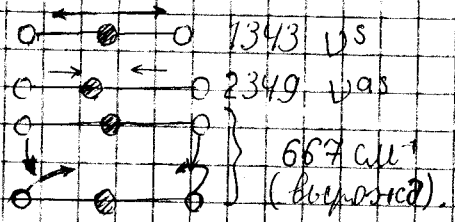 1343 νs
2349 νas
667 см⁻¹
(вырожд.)